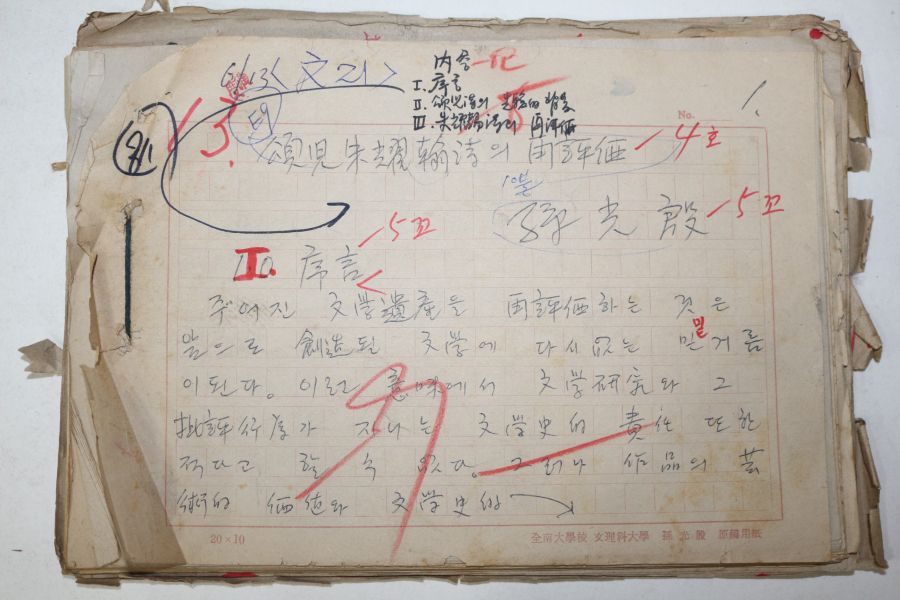 6/13 <文리>
内容
I. 序言
II. 頌兒詩의
III. 朱耀翰詩의 再評価
No.
1.
59
頌児朱耀翰詩의 再評価 4호
孫光殷 5호
I. 序言 5포
주어진 文學遺産을 再評価하는 것은
앞으로 創造된 文學에 다시없는 밑거름
이 된다. 이런 意味에서 文学研究와 그
批評行為가 지니는 文學史的 責任 또한
적다고 할 수 없다. 그러나 作品의 芸
術的 価値와 文学史的
20×10
全南大學校 文理科大學 孫光殷 原稿用紙